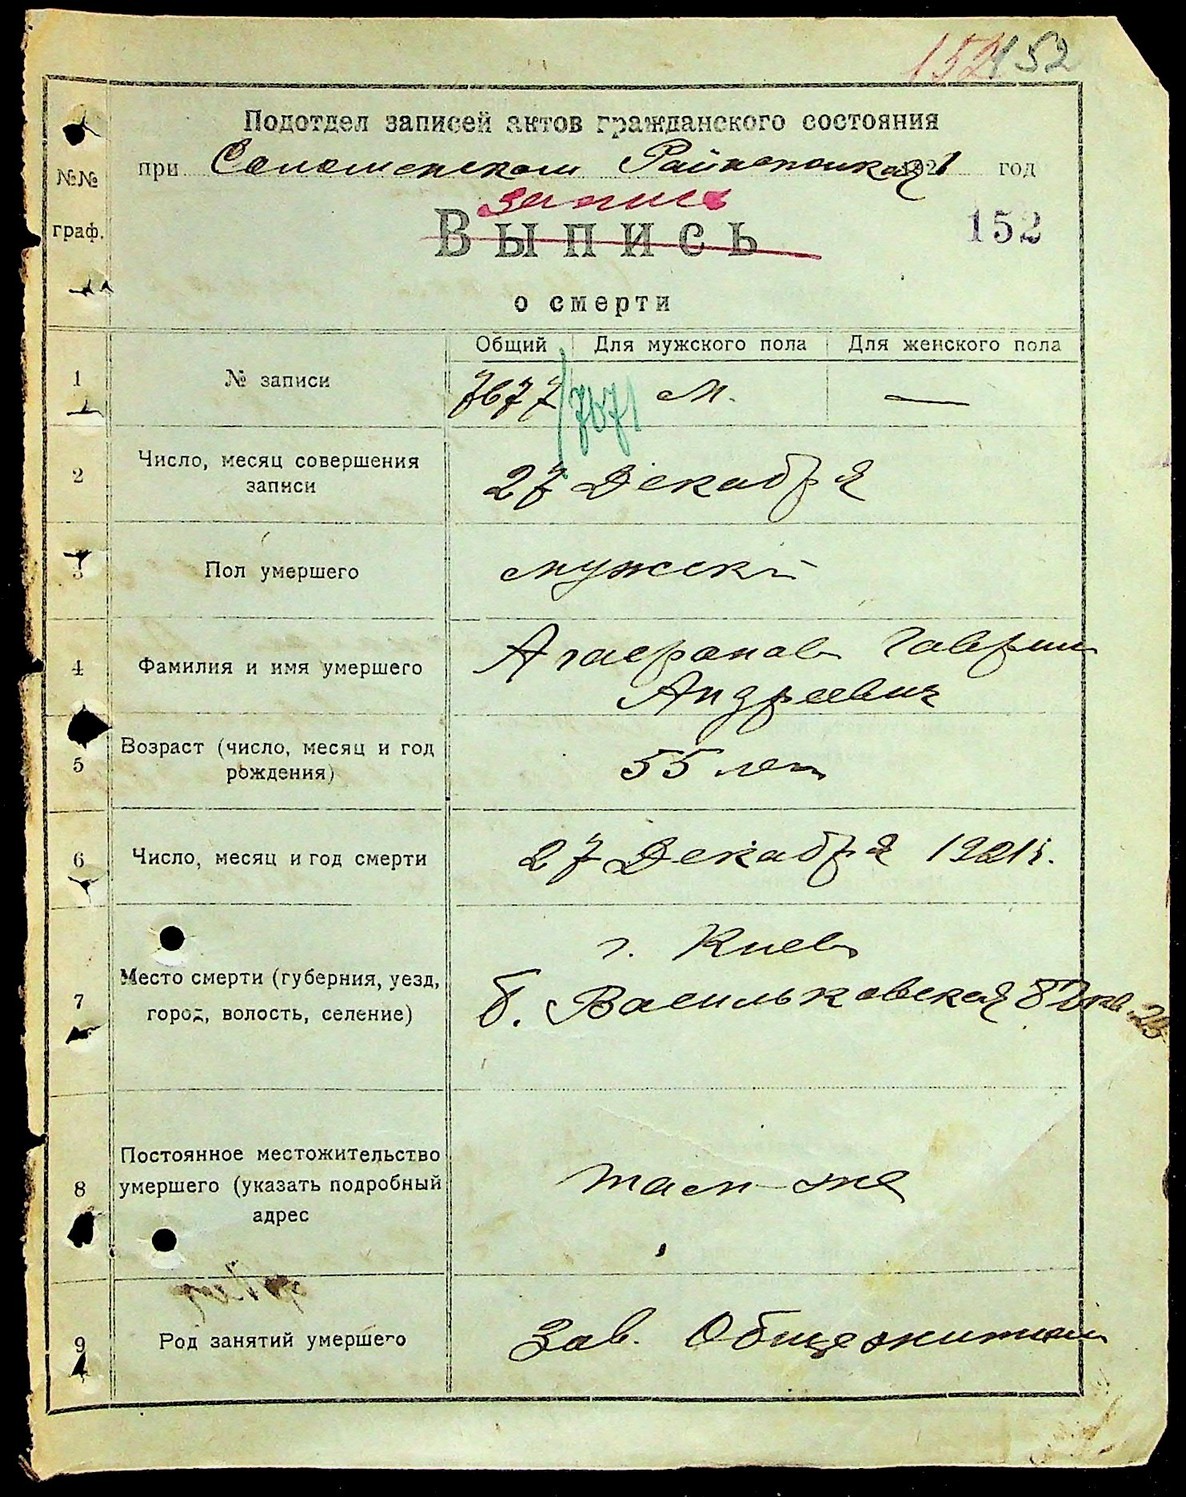 152 152
Подотдел записей актов гражданского состояния
при Соломенском 1921 год
№№
граф.
запись
Выпись
152
о смерти
Общий Для мужского пола Для женского пола
1 № записи 7677 / 7671 М. —
2 Число, месяц совершения
записи
27 Декабря
3 Пол умершего мужской
4 Фамилия и имя умершего
Гавриил
Андреевич
5 Возраст (число, месяц и год
рождения)
55 лет
6 Число, месяц и год смерти 27 Декабря 1921 г.
7 Место смерти (губерния, уезд,
город, волость, селение)
г. Киев
Б. Васильковская кв.
8 Постоянное местожительство
умершего (указать подробный
адрес
там-же
9 Род занятий умершего Зав. Общежитием